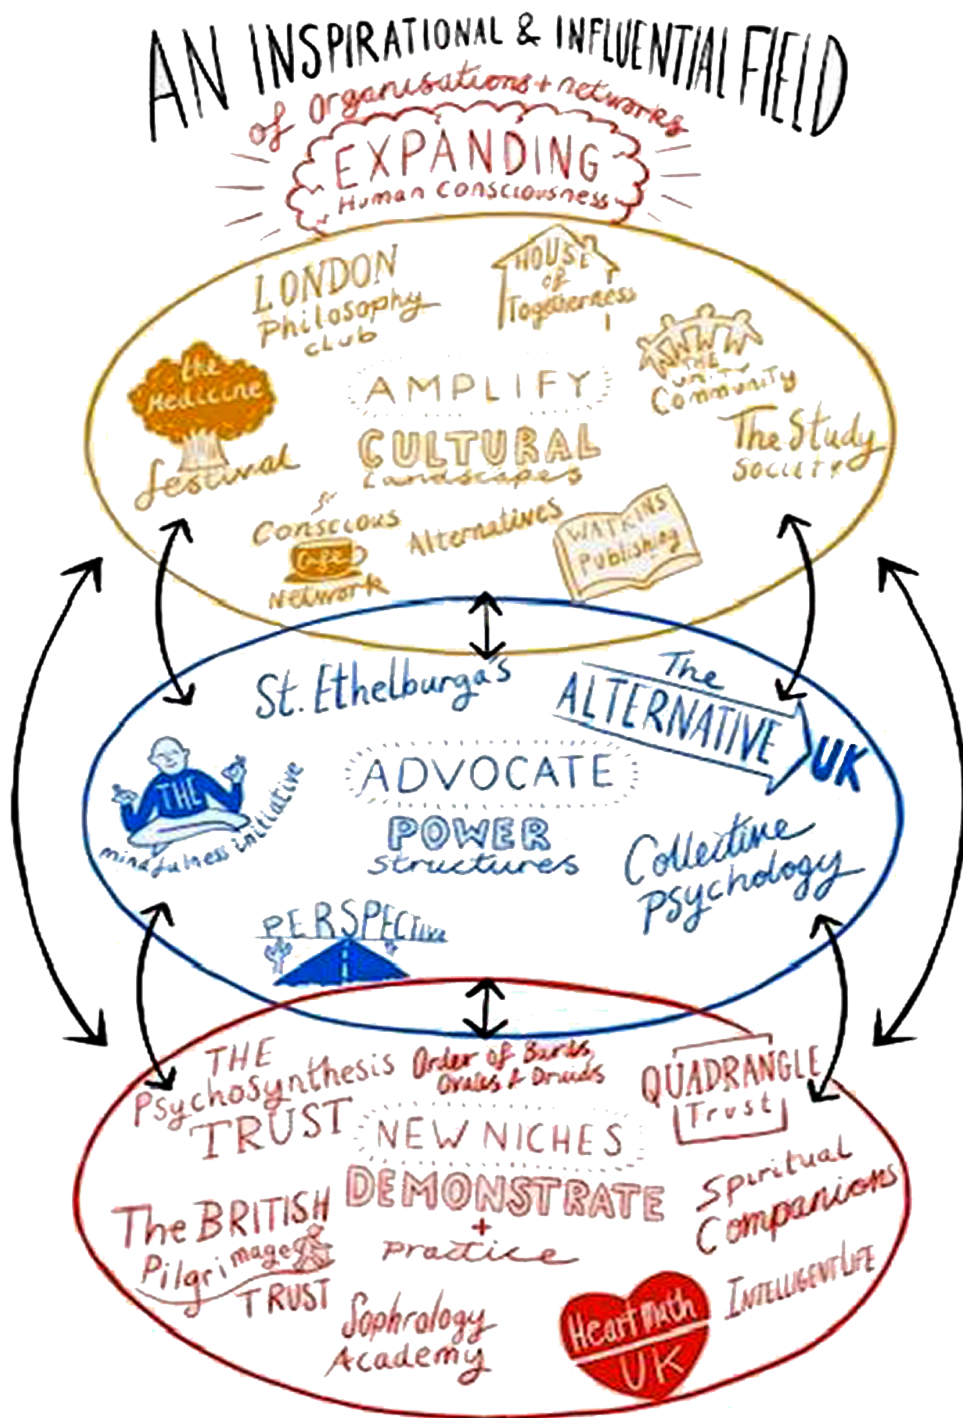 AN INSPIRATIONAL & INFLUENTIAL FIELD
of organisations + networks
EXPANDING
Human Consciousness
LONDON
Philosophy
CLUB
HOUSE
of
Togetherness
the
Medicine
festival
AMPLIFY
CULTURAL
Landscapes
THE
UNITY
Community
The Study
SOCIETY
Conscious
Cafe
Network
Alternatives
WATKINS
Publishing
St. Ethelburga's
The
ALTERNATIVE
UK
THE
mindfulness initiative
ADVOCATE
POWER
Structures
Collective
PSychology
PERSPECTIVA
THE
Psychosynthesis
TRUST
Order of Bards,
Ovates & Druids
QUADRANGLE
Trust
NEW NICHES
DEMONSTRATE
+
practice
The BRITISH
Pilgrimage
TRUST
Spiritual
Companions
Sophrology
Academy
Heartmath
UK
INTELLIGENT LIFE